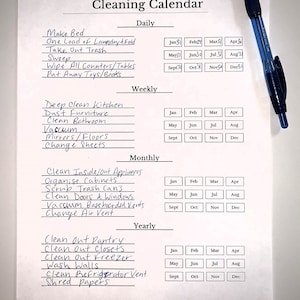 Cleaning Calendar
Daily
Make Bed
One Load of Laundry & Fold
Take Out Trash
Sweep
Wipe All Counters/Tables
Put Away Toys/Books
Jan Feb Mar Apr
May Jun Jul Aug
Sept Oct Nov Dec
Weekly
Deep Clean Kitchen
Dust Furniture
Clean Bathroom
Vacuum
Mirrors/Floors
Change Sheets
Jan Feb Mar Apr
May Jun Jul Aug
Sept Oct Nov Dec
Monthly
Clean Inside/out Appliances
Organize Cabinets
Scrub Trash Cans
Clean Doors & Windows
Vacuum Baseboards/Vents
Change Air Vent
Jan Feb Mar Apr
May Jun Jul Aug
Sept Oct Nov Dec
Yearly
Clean Out Pantry
Clean Out Closets
Clean Out Freezer
Wash Walls
Clean Refrigerator Vent
Shred Papers
Jan Feb Mar Apr
May Jun Jul Aug
Sept Oct Nov Dec